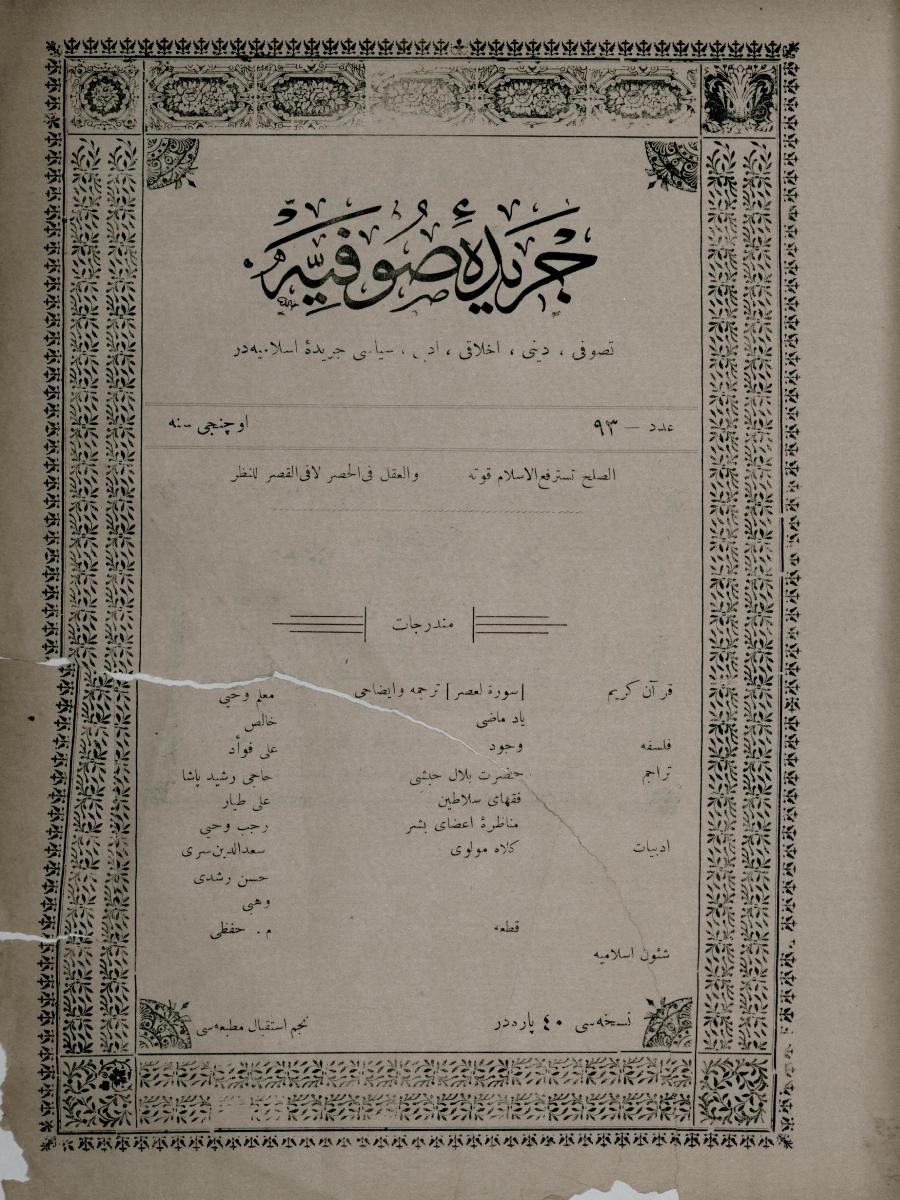 جريدهٔ صوفيه
تصوفی ، دينی ، اخلاقی ، ادبی ، سياسی جريدهٔ اسلاميه‌در
عدد — ٩٣ اوچنجی سنه
الصلح تسترفع الاسلام قوته والعقل فی‌الحصر لافی‌القصر للنظر
مندرجات
قرآن كريم [سورهٔ لعصر] ترجمه وايضاحی معلم وحيی
ياد ماضی خالص
فلسفه وجود علی فوأد
تراجم حضرت بلال حبشی حاجی رشيد پاشا
فقهای سلاطين علی طيار
مناظرهٔ اعضای بشر رجب وحيی
ادبيات كلاه مولوی سعدالدين سری
حسن رشدی
وهبی
قطعه م . حفظی
شئون اسلاميه
نسخه‌سی ٤٠ پاره‌در نجم استقبال مطبعه‌سی